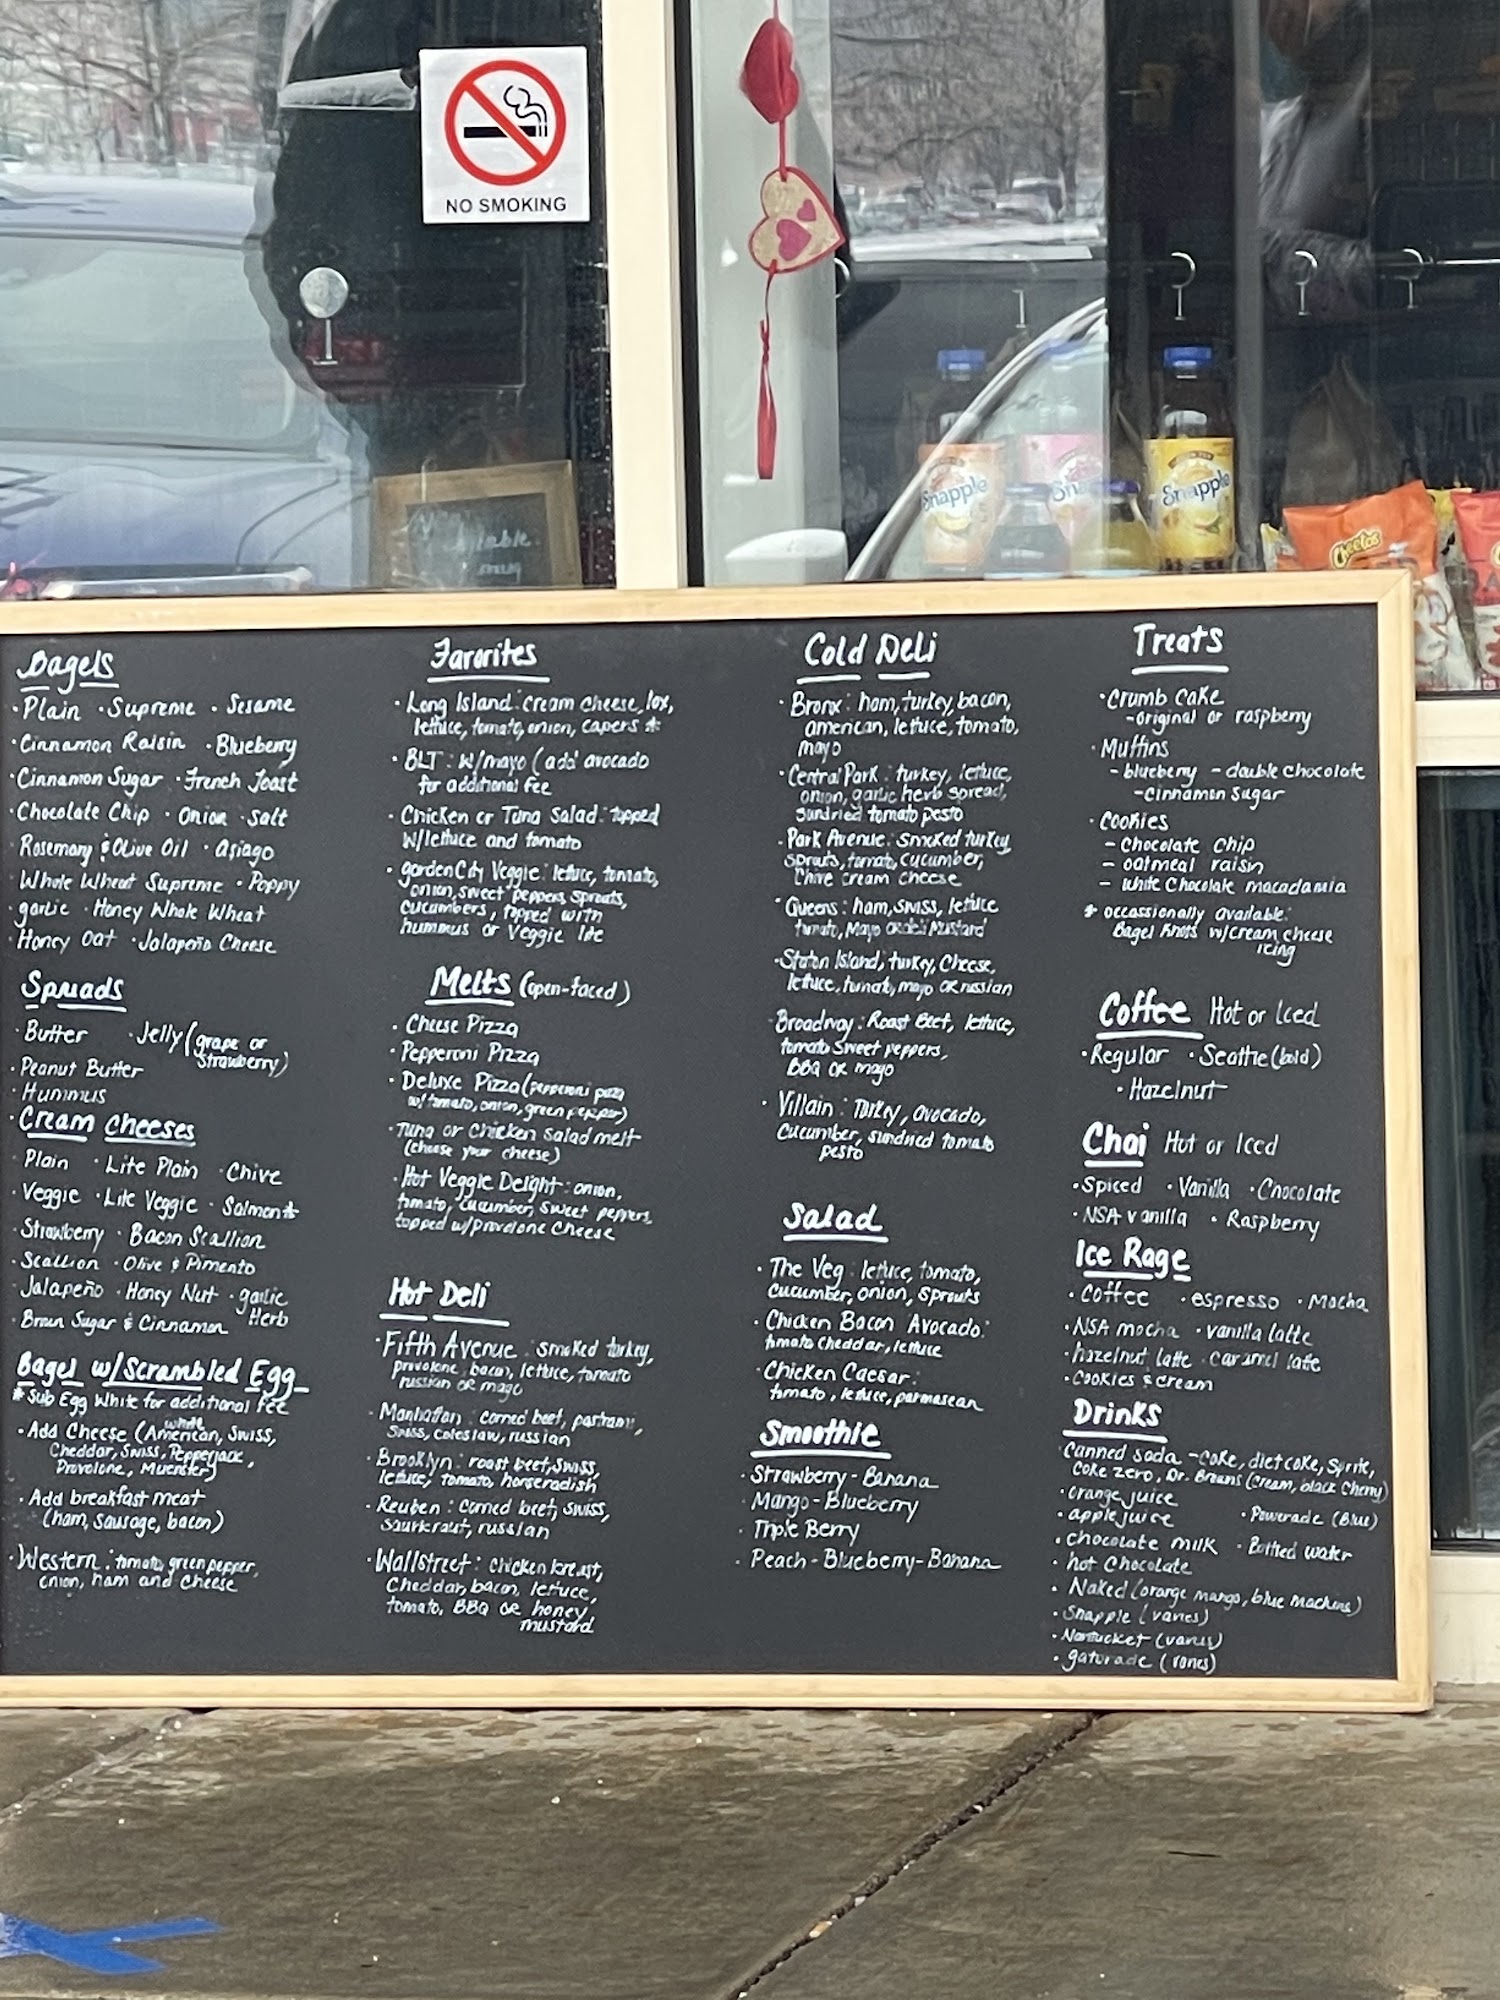 NO SMOKING
Snapple
Snapple
Cheetos
Bagels
·Plain ·Supreme ·Sesame
·Cinnamon Raisin ·Blueberry
·Cinnamon Sugar ·French Toast
·Chocolate Chip ·Onion ·Salt
·Rosemary & Olive Oil ·Asiago
·Whole Wheat Supreme ·Poppy
·garlic ·Honey Whole Wheat
·Honey Oat ·Jalapeño Cheese
Spreads
·Butter ·Jelly (grape or
strawberry)
·Peanut Butter
·Hummus
·Cream cheeses
·Plain ·Lite Plain ·Chive
·Veggie ·Lite Veggie ·Salmon*
·Strawberry ·Bacon Scallion
·Scallion ·Olive & Pimento
·Jalapeño ·Honey Nut ·garlic
Herb
·Brown Sugar & Cinnamon
Bagel w/Scrambled Egg
*Sub Egg White for additional fee
white
·Add Cheese (American, Swiss,
Cheddar, Swiss, Pepperjack,
Provolone, Muenster)
·Add breakfast meat
(ham, sausage, bacon)
·Western: tomato, green pepper,
onion, ham and cheese
Favorites
·Long Island: cream cheese, lox,
lettuce, tomato, onion, capers *
·BLT: w/mayo (add avocado
for additional fee
·Chicken or Tuna Salad: topped
w/lettuce and tomato
·garden City Veggie: lettuce, tomato,
onion, sweet peppers, sprouts,
cucumbers, topped with
hummus or Veggie lite
Melts (open-faced)
·Cheese Pizza
·Pepperoni Pizza
·Deluxe Pizza (pepperoni pizza
w/tomato, onion, green pepper)
·Tuna or Chicken Salad melt
(choose your cheese)
·Hot Veggie Delight: onion,
tomato, cucumber, sweet peppers,
topped w/provolone cheese
Hot Deli
·Fifth Avenue: smoked turkey,
provolone, bacon, lettuce, tomato
russian or mayo
·Manhattan: corned beef, pastrami,
Swiss, coleslaw, russian
·Brooklyn: roast beef, swiss,
lettuce, tomato, horseradish
·Reuben: corned beef, swiss,
Saurkraut, russian
·Wallstreet: chicken breast,
cheddar, bacon, lettuce,
tomato, BBQ or honey
mustard
Cold Deli
·Bronx: ham, turkey, bacon,
american, lettuce, tomato,
mayo
·Central Park: turkey, lettuce,
onion, garlic herb spread,
sundried tomato pesto
·Park Avenue: smoked turkey,
sprouts, tomato, cucumber,
Chive cream cheese
·Queens: ham, swiss, lettuce
tomato, Mayo or deli Mustard
·Staton Island, turkey, Cheese,
lettuce, tomato, mayo or russian
·Broadway: Roast Beef, lettuce,
tomato Sweet peppers,
BBQ or mayo
·Villain: Turkey, avocado,
cucumber, sundried tomato
pesto
Salad
·The Veg: lettuce, tomato,
cucumber, onion, sprouts
·Chicken Bacon Avocado:
tomato cheddar, lettuce
·Chicken Caesar:
tomato, lettuce, parmasean
Smoothie
·Strawberry-Banana
·Mango-Blueberry
·Triple Berry
·Peach-Blueberry-Banana
Treats
·Crumb Cake
-original or raspberry
·Muffins
-blueberry -double chocolate
-cinnamon sugar
·cookies
-chocolate chip
-oatmeal raisin
-white chocolate macadamia
*occassionally available:
Bagel Knots w/cream cheese
icing
Coffee Hot or Iced
·Regular ·Seattle (bold)
·Hazelnut
Chai Hot or Iced
·Spiced ·Vanilla ·Chocolate
·NSA vanilla ·Raspberry
Ice Rage
·Coffee ·espresso ·Mocha
·NSA mocha ·vanilla latte
·hazelnut latte ·caramel latte
·cookies & cream
Drinks
·Canned soda -coke, diet coke, Sprite,
coke zero, Dr. Browns (cream, black cherry)
·orange juice
·apple juice ·Powerade (Blue)
·chocolate milk ·Bottled water
·hot chocolate
·Naked (orange mango, blue machine)
·Snapple (varies)
·Nantucket (varies)
·gatorade (varies)